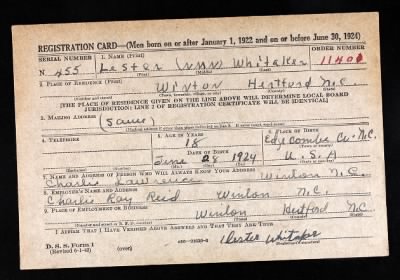 REGISTRATION CARD—(Men born on or after January 1, 1922 and on or before June 30, 1924)
SERIAL NUMBER 1. NAME (Print) ORDER NUMBER
N 455 Lester (NMN) Whitaker 11400
(First) (Middle) (Last)
2. PLACE OF RESIDENCE (Print)
Winton Hertford N.C.
(Number and street) (Town, township, village, or city) (County) (State)
[THE PLACE OF RESIDENCE GIVEN ON THE LINE ABOVE WILL DETERMINE LOCAL BOARD
JURISDICTION; LINE 2 OF REGISTRATION CERTIFICATE WILL BE IDENTICAL]
3. MAILING ADDRESS
(Same)
[Mailing address if other than place indicated on line 2. If same insert word same]
4. TELEPHONE 5. AGE IN YEARS 6. PLACE OF BIRTH
18 Edgecombe Co. N.C.
DATE OF BIRTH
June 28 1924 U.S.A
7. NAME AND ADDRESS OF PERSON WHO WILL ALWAYS KNOW YOUR ADDRESS
Charlie Lawrence Winton N.C.
8. EMPLOYER'S NAME AND ADDRESS
Charlie Ray Reid Winton N.C.
9. PLACE OF EMPLOYMENT OR BUSINESS
Winton Hertford N.C.
(Number and street or R. F. D. number) (Town) (County) (State)
I AFFIRM THAT I HAVE VERIFIED ABOVE ANSWERS AND THAT THEY ARE TRUE
D. S. S. Form 1
(Revised 6-1-42) (over) Lester Whitaker
(Registrant's signature)